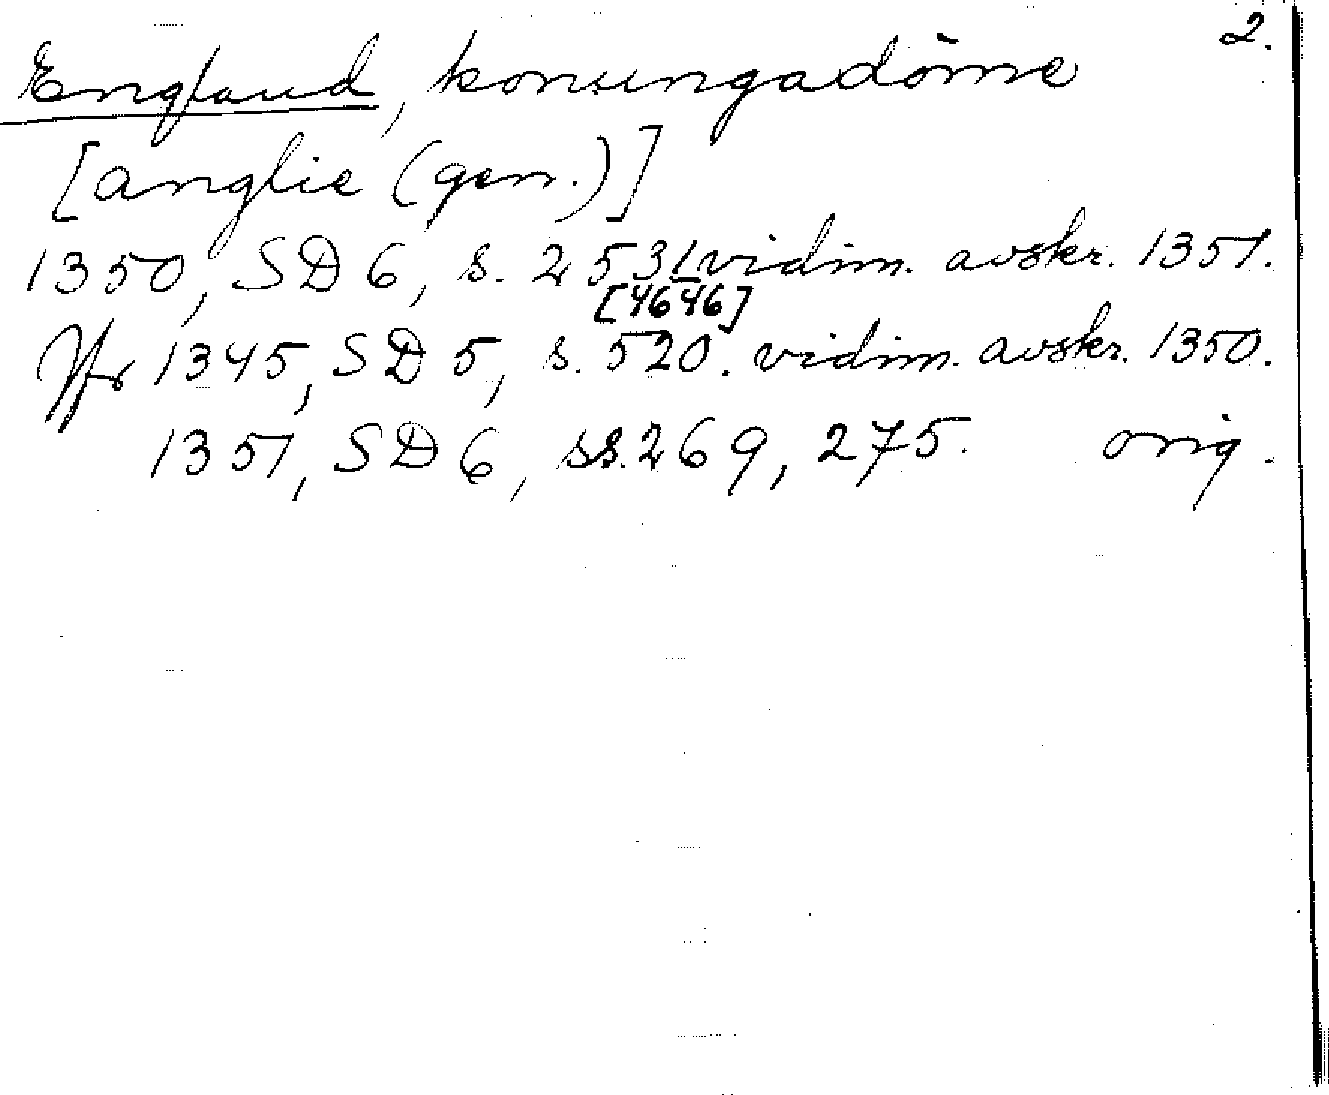 2.
England, konungadöme
[anglie (gen.)]
1350, SD 6, s. 253 vidim. avskr. 1351.
[4646]
Jfr 1345, SD 5, s. 520. vidim. avskr. 1350.
1351, SD 6, ss. 269, 275. orig.